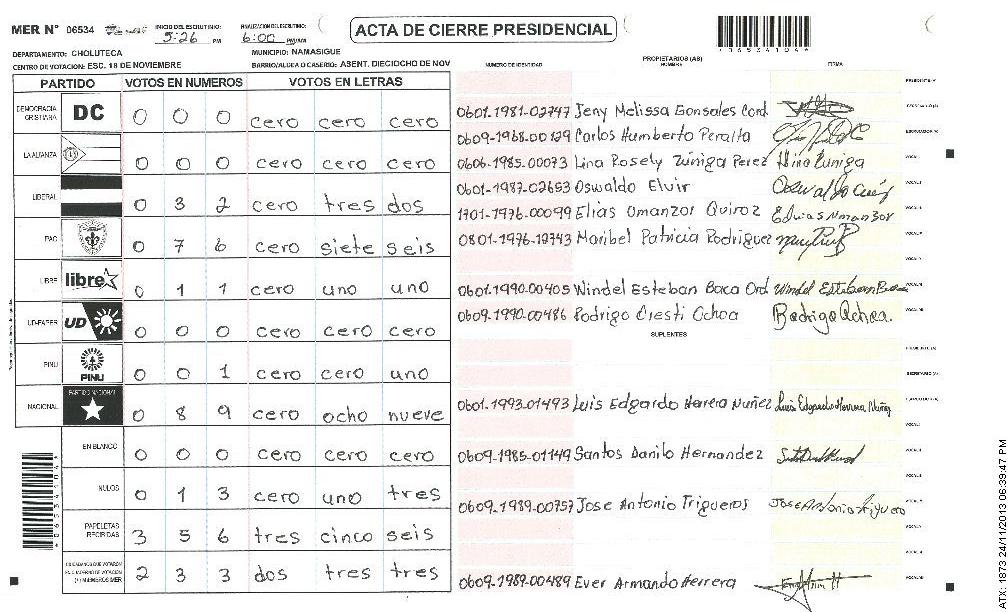 MER N° 06534 INICIO DEL ESCRUTINIO: 5:26 PM FINALIZACION DEL ESCRUTINIO: 6:00 PM/AM
ACTA DE CIERRE PRESIDENCIAL
DEPARTAMENTO: CHOLUTECA MUNICIPIO: NAMASIGUE
CENTRO DE VOTACION: ESC. 18 DE NOVIEMBRE BARRIO/ALDEA O CASERIO: ASENT. DIECIOCHO DE NOV
PARTIDO VOTOS EN NUMEROS VOTOS EN LETRAS
DEMOCRACIA CRISTIANA DC 0 0 0 cero cero cero
LA ALIANZA 0 0 0 cero cero cero
LIBERAL 0 3 2 cero tres dos
PAC 0 7 6 cero siete seis
LIBRE libre 0 1 1 cero uno uno
UD-FAPER UD 0 0 0 cero cero cero
PINU PINU 0 0 1 cero cero uno
NACIONAL PARTIDO NACIONAL 0 8 9 cero ocho nueve
EN BLANCO 0 0 0 cero cero cero
NULOS 0 1 3 cero uno tres
PAPELETAS RECIBIDAS 3 5 6 tres cinco seis
CIUDADANOS QUE VOTARON 2 3 3 dos tres tres
PROPIETARIOS (AS)
NUMERO DE IDENTIDAD NOMBRE FIRMA
0601-1981-02747 Jeny Melissa Gonsales Cord
0609-1968-00129 Carlos Humberto Peralta
0606-1985-00073 Lina Rosely Zuniga Perez
0601-1987-02653 Oswaldo Elvir
1701-1976-00099 Elias Omanzor Quiroz
0801-1976-12743 Maribel Patricia Rodriguez
0601-1990-00405 Windel Esteban Baca Ord Windel Esteban
0609-1990-00486 Rodrigo Cresti Ochoa Rodrigo Ochoa.
SUPLENTES
0601-1993-01493 Luis Edgardo Herrera Nuñez Luis Edgardo Herrera Nuñez
0609-1985-01149 Santos Danilo Hernandez
0609-1989-00757 Jose Antonio Trigueros Jose Antonio Triguero
0609-1989-00489 Ever Armando Herrera
ATX: 1873 24/11/2013 06:39:47 PM